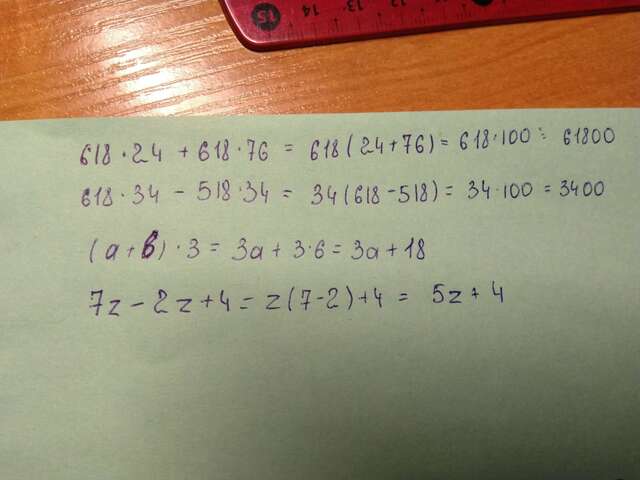 15 14 13 12 11
618 · 24 + 618 · 76 = 618(24+76) = 618·100 = 61800
618 · 34 - 518 · 34 = 34(618-518) = 34·100 = 3400
(a + 6) · 3 = 3a + 3·6 = 3a + 18
7z - 2z + 4 = z(7-2)+4 = 5z + 4